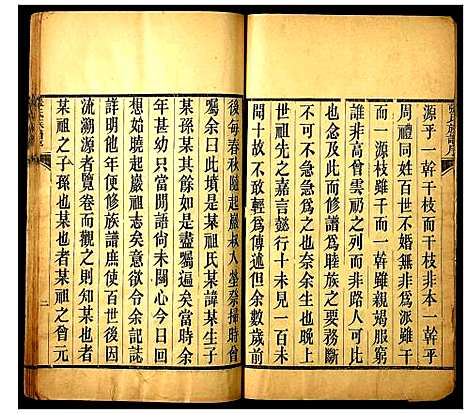 源乎一幹千枝而千枝非本一幹乎
周禮同姓百世不婚無非為派雖千
而一源枝雖千而一幹雖親竭服窮
誰非高曾雲礽之列而非路人可比
也念及此而修譜為睦族之要務斷
不可不急急為之也奈余生也晚上
世祖先之嘉言懿行十未見一百未
聞十故不敢輕為傳述但余數歲前
後每春秋隨起巖叔入塋奈掃時曾
囑余曰此墳是某祖氏某諱某生子
孫某某其如是盡囑遍矣當時余
年甚幼只當閒語尚未關心今日回
想始曉起巖祖志矣意欲余記誌
詳明他年便修族譜庶使百世後因
流溯源者覽卷而觀之則知某也
某祖之子孫也某也某祖之曾元
二